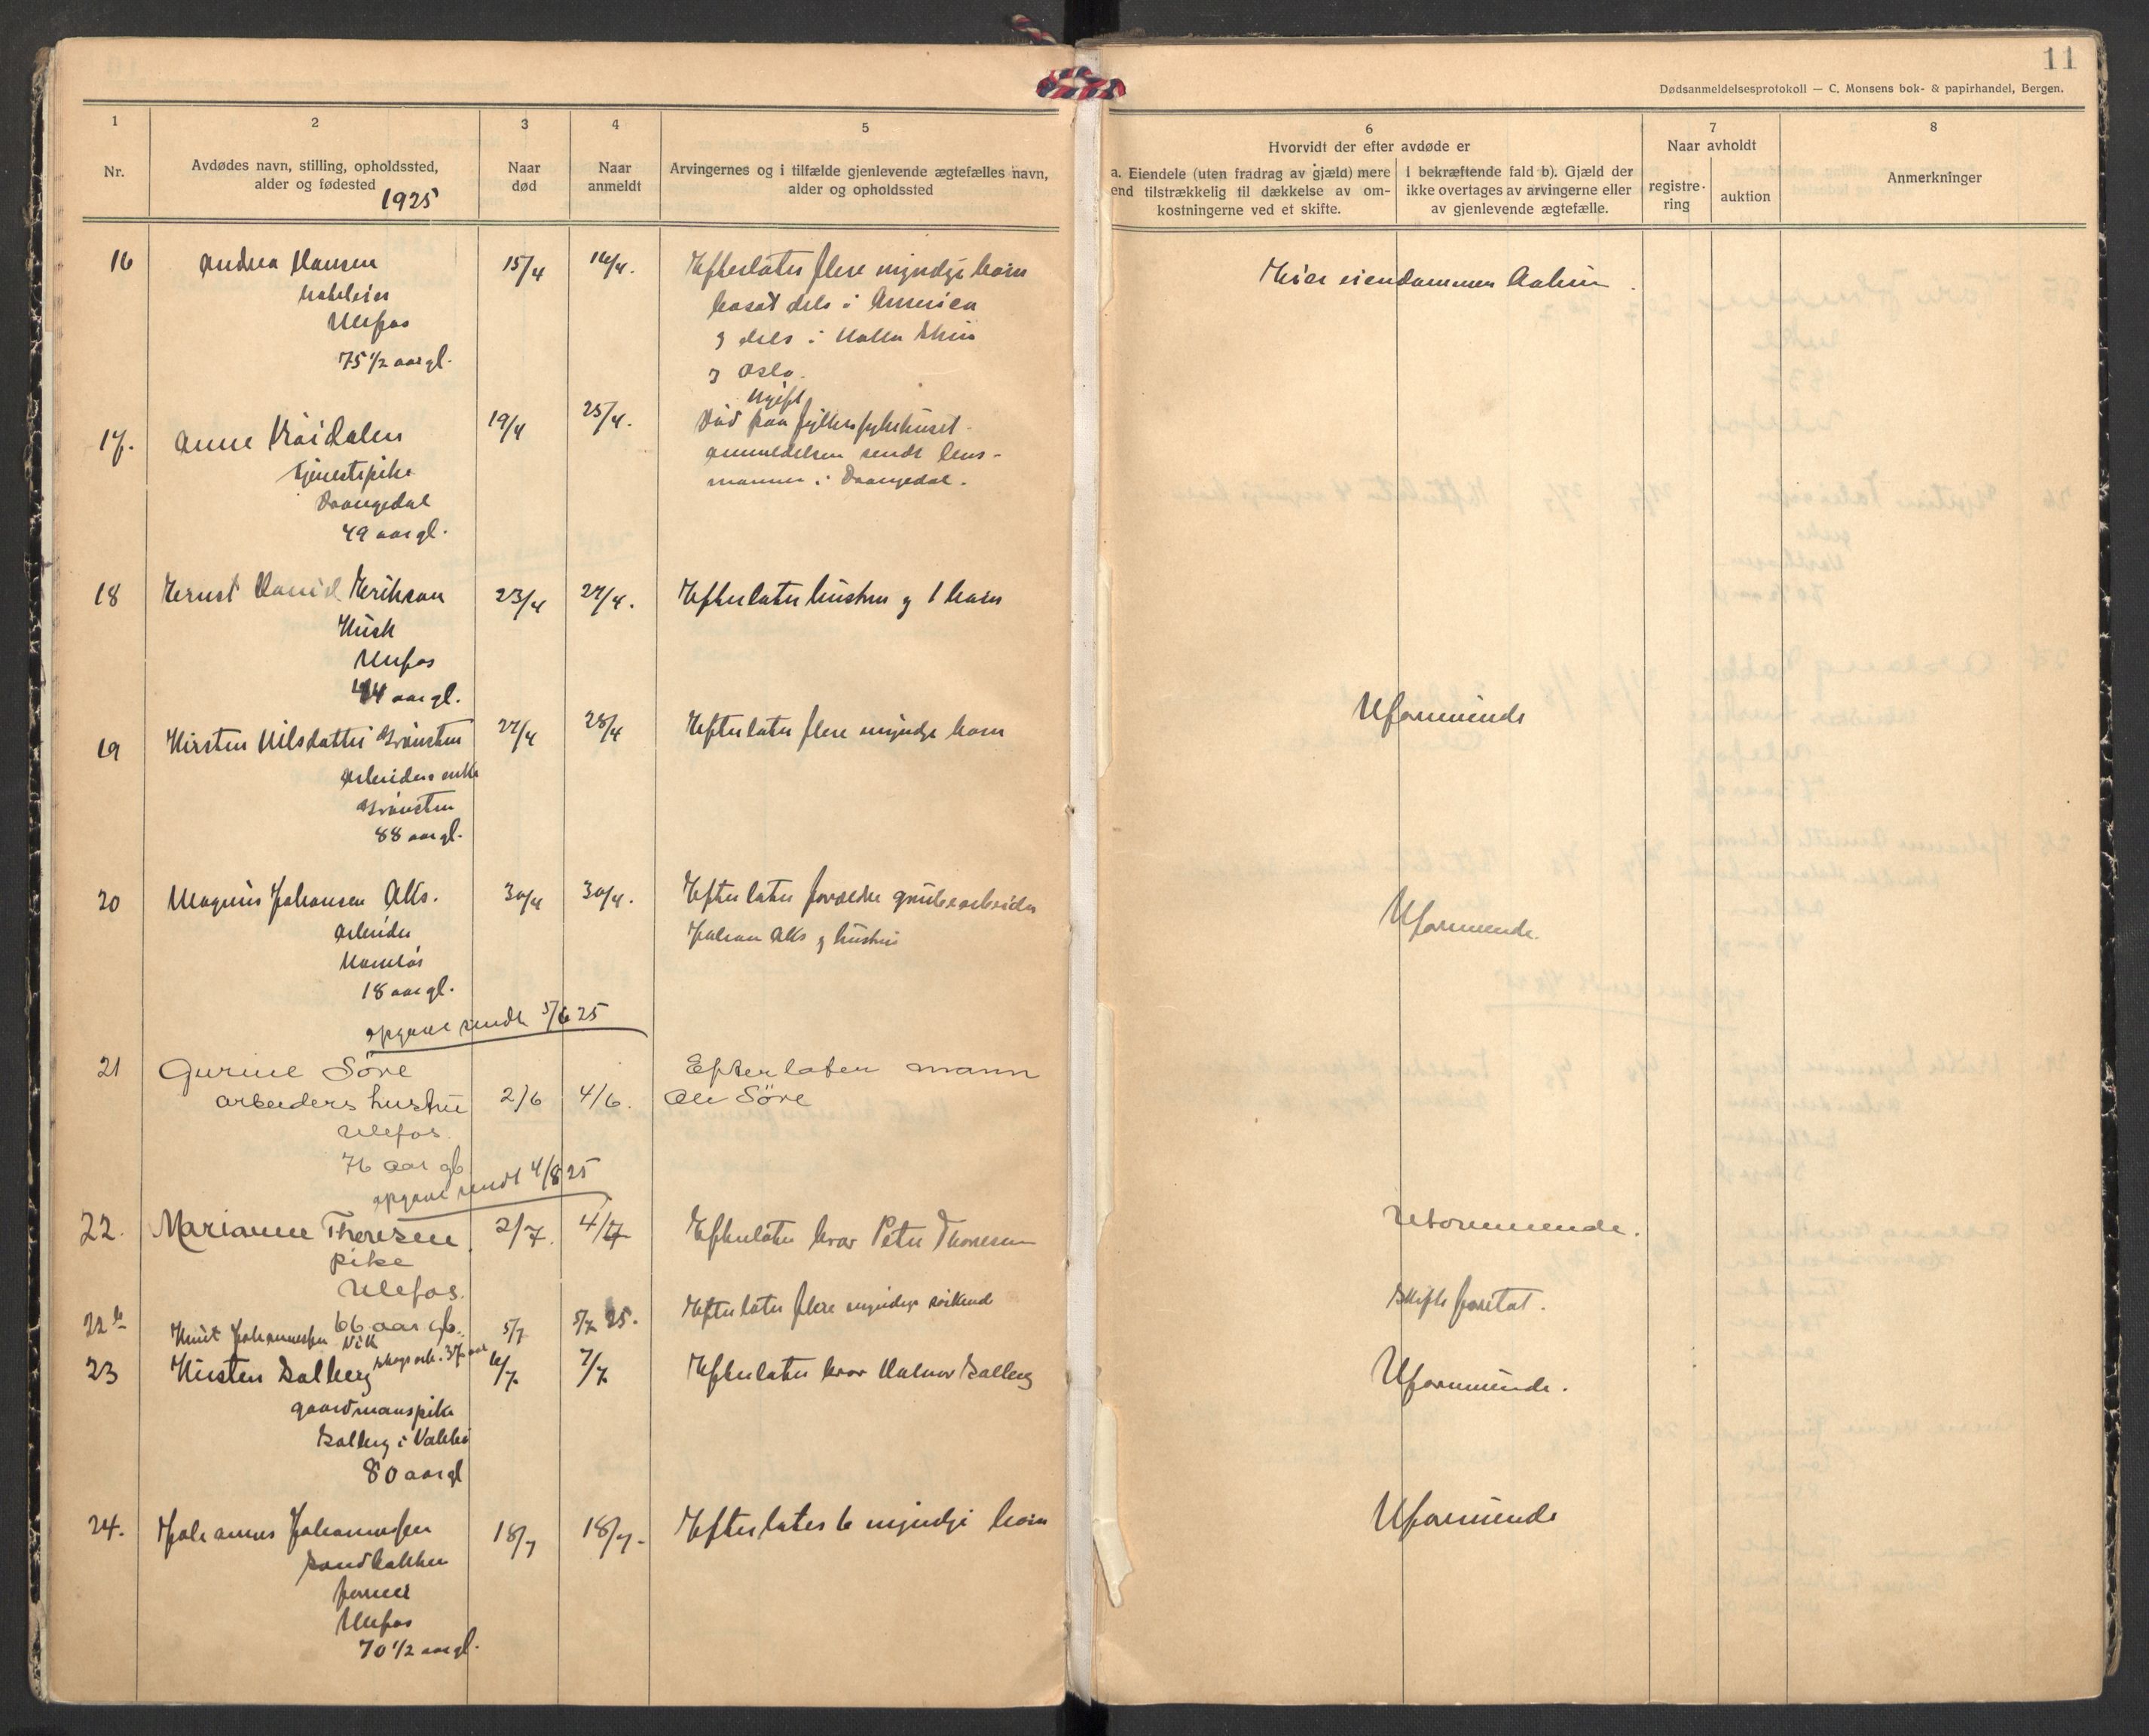 11
Dødsanmeldelsesprotokoll — C. Monsens bok- & papirhandel, Bergen.
1
2
3
4
5
6
7
8
Nr.
Avdødes navn, stilling, opholdssted,
alder og fødested
1925
Naar
død
Naar
anmeldt
Arvingernes og i tilfælde gjenlevende ægtefælles navn,
alder og opholdssted
Hvorvidt der efter avdøde er
a. Eiendele (uten fradrag av gjæld) mere
end tilstrækkelig til dækkelse av om-
kostningerne ved et skifte.
I bekræftende fald b). Gjæld der
ikke overtages av arvingerne eller
av gjenlevende ægtefælle.
Naar avholdt
registre-
ring
auktion
Anmerkninger
16 Andrea Hansen 15/4 16/4. Efterlater flere myndige barn Eier eiendommen
bosat dels i America
Ulefos
g dels i Holla Skien
75 1/2 aar gl.
g Oslo.
Ugift
17. Anne 19/4 25/4. Død paa fylkessykehuset
tjenestepike
anmeldelsen sendt lens-
Drangedal
manden i Drangedal.
49 aar gl.
18 Ernst Daniel Erikson 23/4 27/4. Efterlater hustru g 1 barn
Ulefos
44 aar gl.
19 Kirsten Nilsdatter 27/4 28/4 Efterlater flere myndige barn Uformuende
arbeiders enke
88 aar gl.
20 Magnus Johansen Aks. 30/4 30/4. Efterlater forældre grubearbeider Uformuende.
arbeider
Johan Aks g hustru
18 aar gl.
opgave sendt 5/6 25
21 Gurine Söve Efterlater mann
arbeiders hustru 2/6 4/6. Ole Söve
Ulefos.
76 aar gl.
opgave sendt 4/8 25
22. Marianne Thoresen 2/7. 4/7 Efterlater bror Peter Thoresen Uformuende.
pike
Ulefos.
66 aar gl.
22 b Knut Johannessen Vik 5/7 5/7 25. Efterlater flere myndige søskend Skifte foretat.
skogsarb. 37 aar
23 Kirsten Dalberg 6/7. 7/7. Efterlater bror Halvor Dalberg Uformuende.
gaardmanspike
Dalberg i
80 aar gl
24. Johannes Johannessen 18/7 18/7. Efterlater 6 myndige barn Uformuende
Sandbakken
former
Ulefos
70 1/2 aar gl.